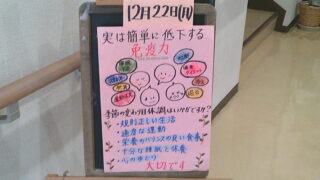 12月22日(月)
実は簡単に低下する
免疫力
季節の変わり目体調はいかがですか?
・規則正しい生活
・適度な運動
・栄養のバランスの良い食事
・十分な睡眠と休養
・心のゆとり
大切です